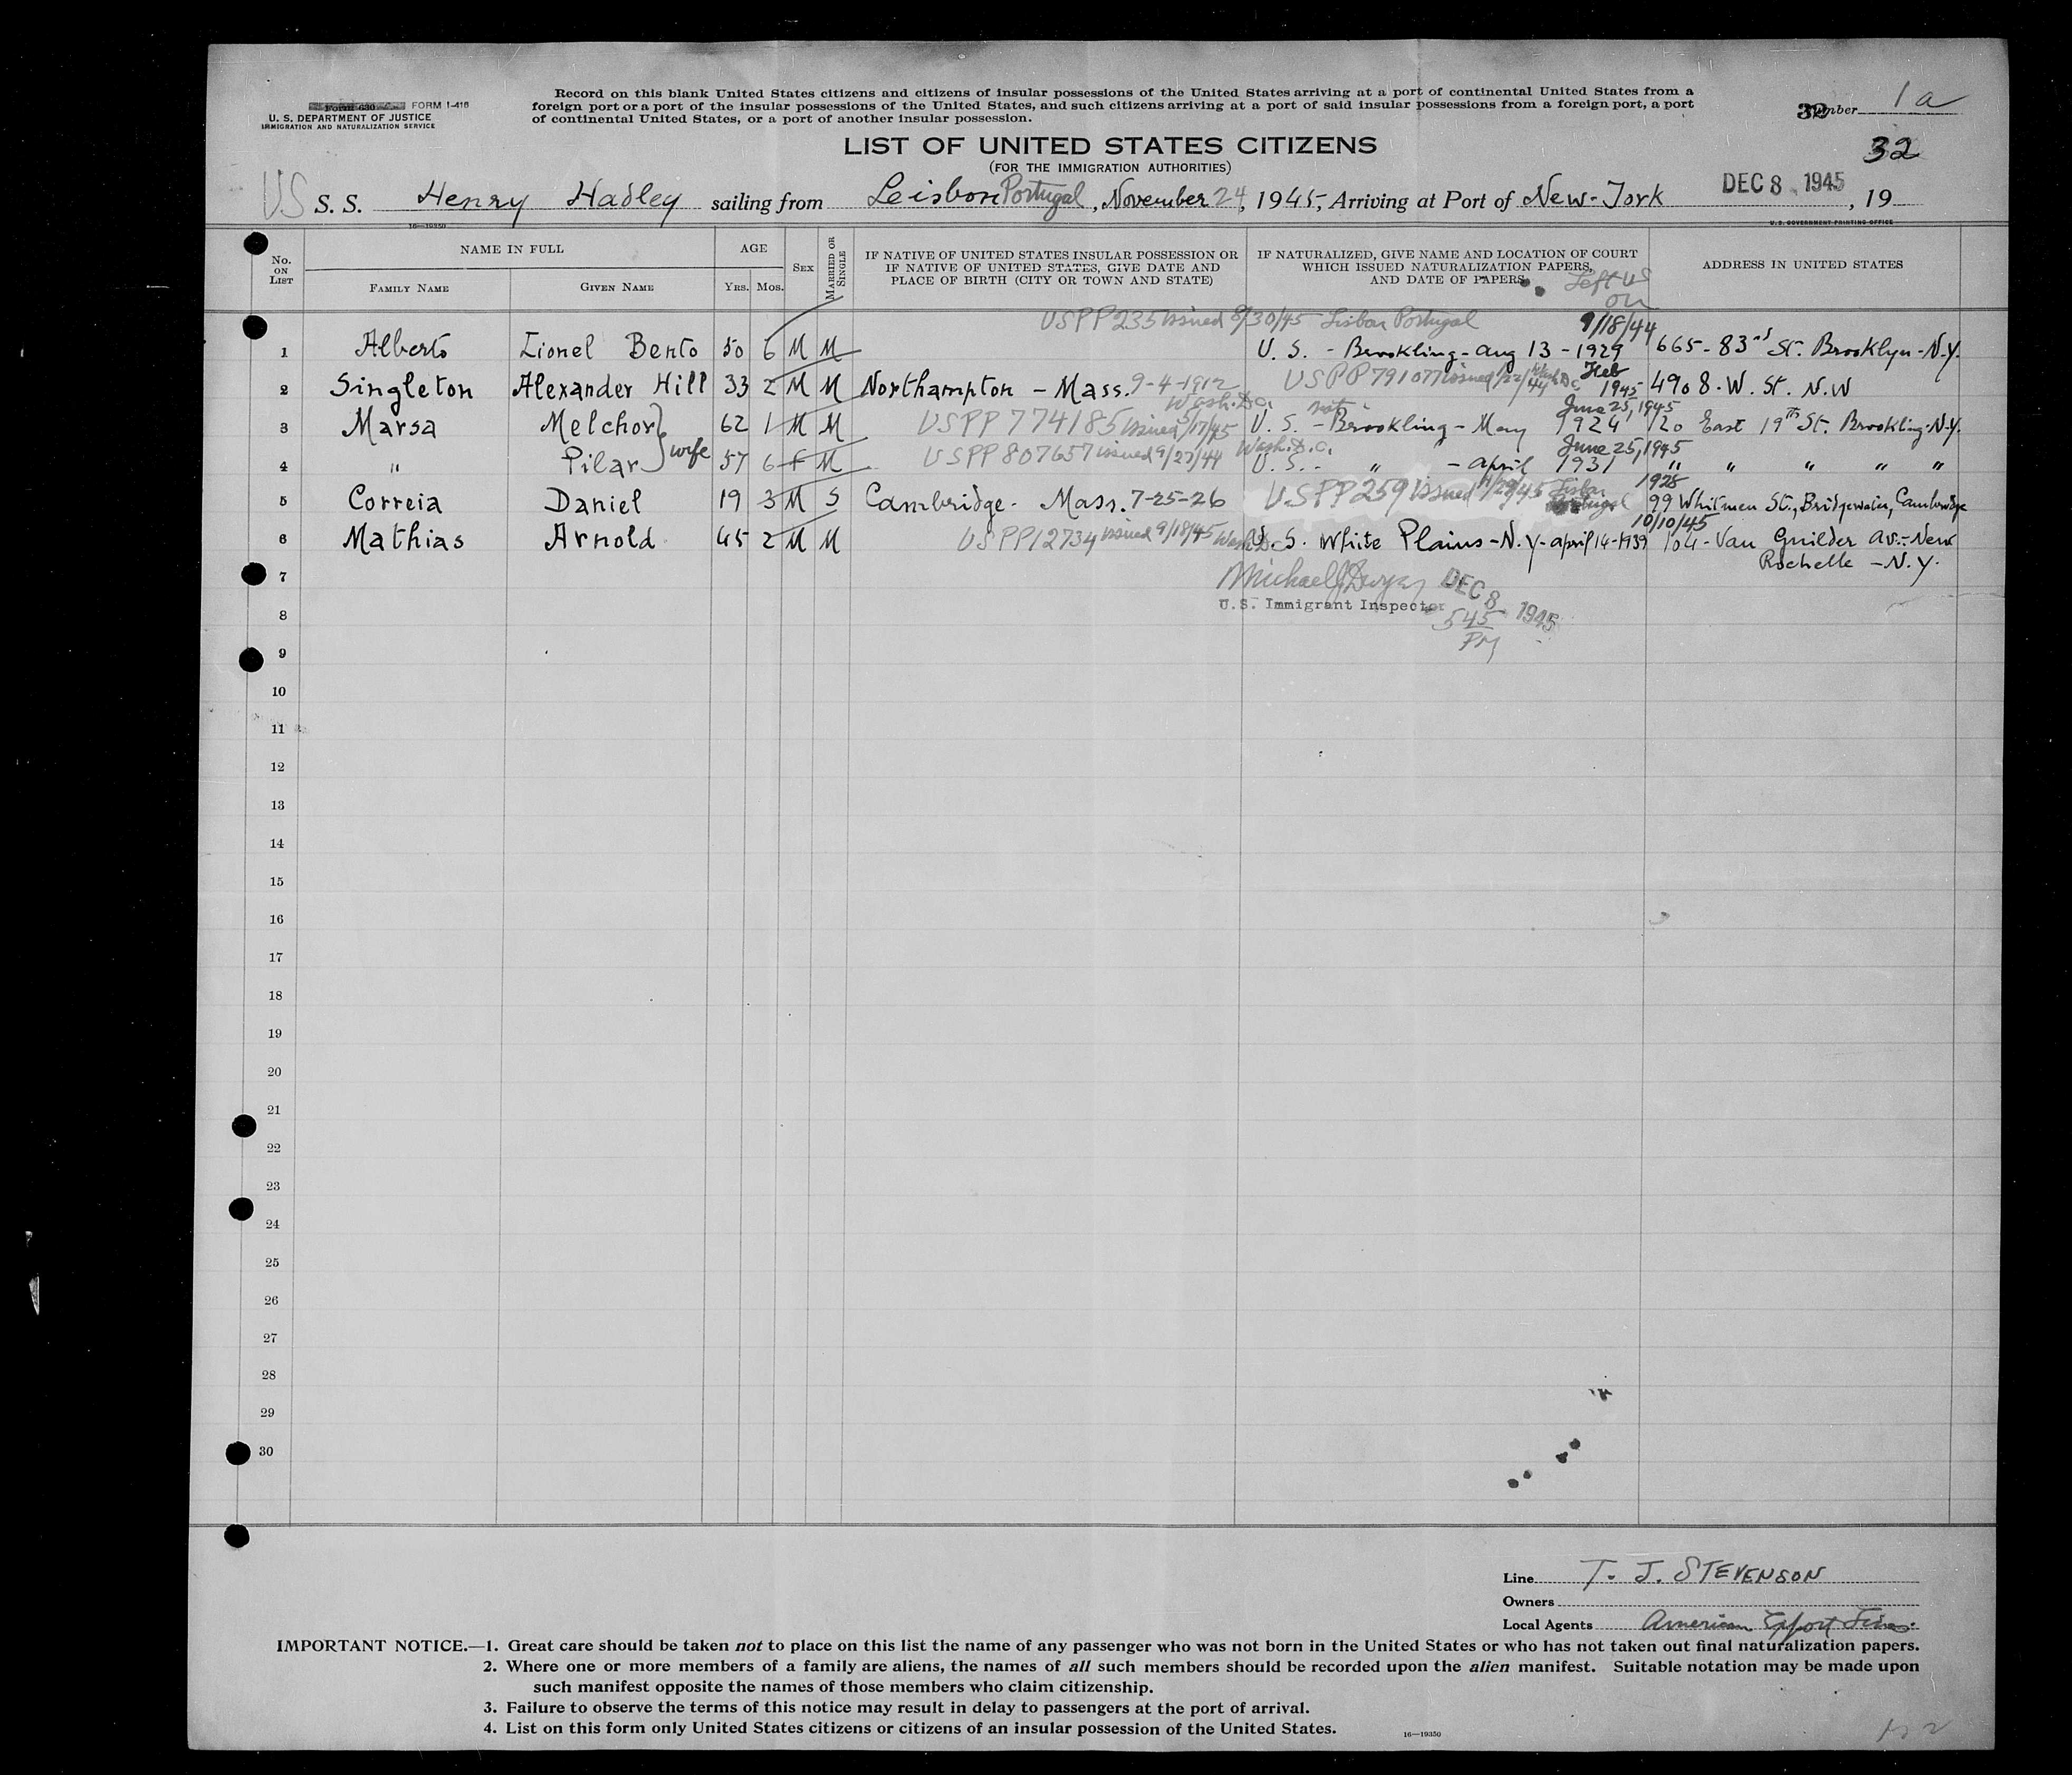 Form 630 FORM I-416
U. S. DEPARTMENT OF JUSTICE
IMMIGRATION AND NATURALIZATION SERVICE
Record on this blank United States citizens and citizens of insular possessions of the United States arriving at a port of continental United States from a
foreign port or a port of the insular possessions of the United States, and such citizens arriving at a port of said insular possessions from a foreign port, a port
of continental United States, or a port of another insular possession.
Number 1a
32
LIST OF UNITED STATES CITIZENS
(FOR THE IMMIGRATION AUTHORITIES)
US S. S. Henry Hadley sailing from Leisbon Portugal, November 24, 1945, Arriving at Port of New-Jork DEC 8 1945, 19
16—19350
U. S. GOVERNMENT PRINTING OFFICE
No. ON LIST
NAME IN FULL
FAMILY NAME
GIVEN NAME
AGE
YRS. MOS.
SEX
MARRIED OR SINGLE
IF NATIVE OF UNITED STATES INSULAR POSSESSION OR
IF NATIVE OF UNITED STATES, GIVE DATE AND
PLACE OF BIRTH (CITY OR TOWN AND STATE)
IF NATURALIZED, GIVE NAME AND LOCATION OF COURT
WHICH ISSUED NATURALIZATION PAPERS,
AND DATE OF PAPERS
Left US
on
ADDRESS IN UNITED STATES
USPP 235 issued 8/30/45 Lisbon Portugal 9/18/44
1 Alberto Lionel Bento 50 6 M M U. S. - Brookling - Aug 13 - 1929 665 - 83rd St. Brooklyn - N.Y.
2 Singleton Alexander Hill 33 2 M M Northampton - Mass. 9-4-1912 USPP 791077 issued /22/44 Wash DC Feb 1945 4908 - W. St. N.W
Wash. D.C. June 25, 1945
3 Marsa Melchor 62 1 M M USPP 774185 issued 5/17/45 U. S. - Brookling - May 1924 120 East 19th St. Brookling - N.Y.
wife Wash. D.C. June 25, 1945
4 " Pilar 57 6 F M USPP 807657 issued 9/27/44 U. S. - " - April 1931 " " " " "
1928
5 Correia Daniel 19 3 M S Cambridge - Mass. 7-25-26 USPP 259 issued /45 Lisbon Portugal 99 Whitmen St., Bridgewater, Cambridge
10/10/45
6 Mathias Arnold 45 2 M M USPP 12734 issued 9/18/45 Wash DC U. S. White Plains - N.Y - april 14-1939 104 - Van Guilder av. - New
Rochelle - N.Y.
7
Michael J Dwyer DEC 8 1945
U.S. Immigrant Inspector
545
PM
8
9
10
11
12
13
14
15
16
17
18
19
20
21
22
23
24
25
26
27
28
29
30
Line T. J. STEVENSON
Owners
Local Agents American Export Lines
IMPORTANT NOTICE.—1. Great care should be taken not to place on this list the name of any passenger who was not born in the United States or who has not taken out final naturalization papers.
2. Where one or more members of a family are aliens, the names of all such members should be recorded upon the alien manifest. Suitable notation may be made upon
such manifest opposite the names of those members who claim citizenship.
3. Failure to observe the terms of this notice may result in delay to passengers at the port of arrival.
4. List on this form only United States citizens or citizens of an insular possession of the United States.
16—19350